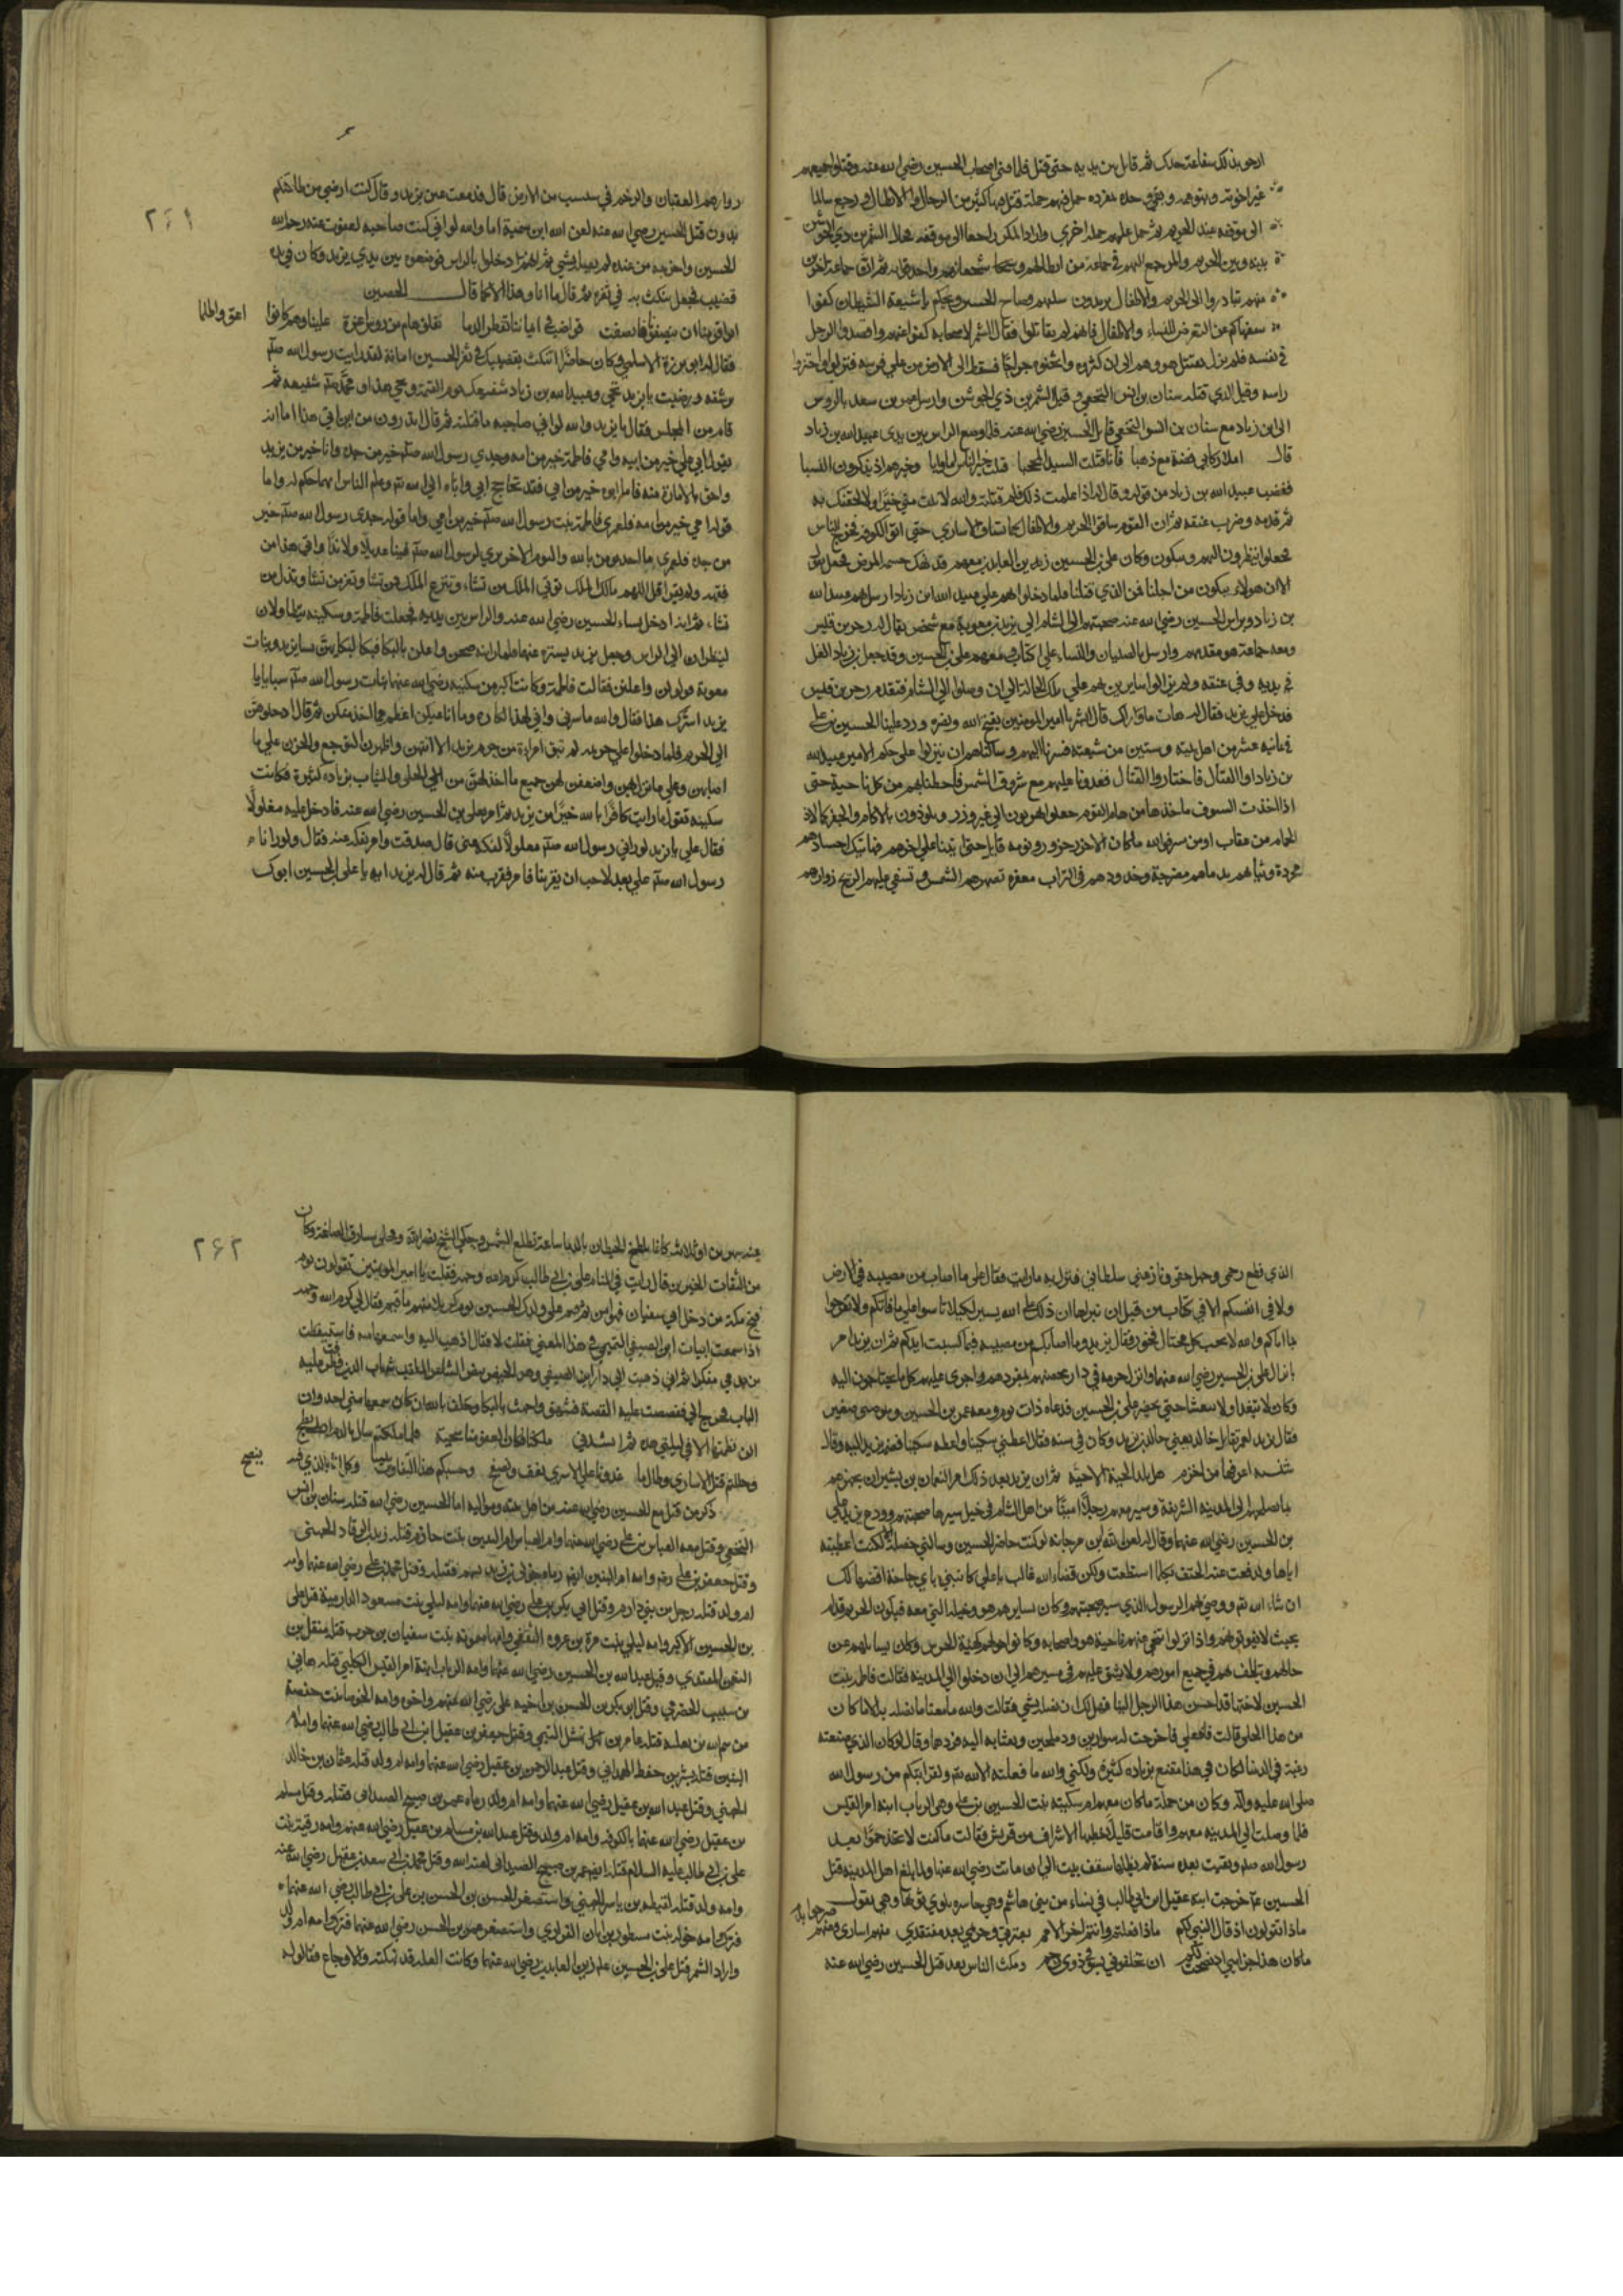 ارجو بذلك شفاعة جدك ثم قاتل بين يديه حتى قتل فلما فنى اصحاب الحسين رضي الله عنه وقتلوا جميعهم
غير اخوته وبنو عمه وبقي وحده بمفرده حمل فيهم حملة قتل منها كثير من الرجال والابطال ورجع سالما
الى موقفه عند الحريم ثم حمل عليهم حملة اخرى واراد الكر راجعا الى موقفه فحال الشمر بن ذي الجوشن
بينه وبين الحريم والمرجع اليهم في جماعة من ابطالهم وشجعانهم واحدقوا به ثم ان جماعة اخرين
منهم تبادروا الى الحريم والاطفال يريدون سلبهم وصاح الحسين ويحكم يا شيعة الشيطان كفوا
سفهاكم عن التعرض للنساء والاطفال فانهم لم يقاتلوا فقال الشمر لاصحابه كفوا عنهم واقصدوا الرجل
في نفسه فلم يزل يقتتل هو وهم الى ان كثروه واثخنوه جراحا فسقط الى الارض من على فرسه فنزلوا واحتزوا
راسه وقيل الذي قتله سنان بن انس النخعي وقيل الشمر بن ذي الجوشن وارسل عمر بن سعد بالروس
الى ابن زياد مع سنان بن انس النخعي قاتل الحسين رضي الله عنه فلما وضع الراس بين يدي عبيد الله بن زياد
قال املا ركابي فضة مع ذهبا فانا قتلت السيد المحجبا قتلت خير الناس اما وابا وخيرهم اذ يذكرون النسبا
فغضب عبيد الله بن زياد من قوله وقال له اذا علمت ذلك فلم قتلته والله لا نلت مني خيرا ولالحقنك به
ثم قدمه وضرب عنقه ثم ان القوم ساقوا الحريم والاطفال كما تساق الاسارى حتى اتوا الكوفة فخرج الناس
فجعلوا ينظرون اليهم ويبكون وكان علي بن الحسين زين العابدين معهم قد نهك جسمه المرض فجعل يقول
الا ان هولاء يبكون من اجلنا فمن الذي قتلنا فلما دخلوا بهم على عبيد الله ابن زياد ارسل بهم عبيد الله
بن زياد وبراس الحسين رضي الله عنه صحبتهم الى الشام الى يزيد بن معوية مع شخص يقال له زحر بن قيس
ومعه جماعة هو مقدمهم وارسل بالصبيان والنساء على اقتاب ومعهم علي بن الحسين وقد جعل بن زياد الغل
في يديه وفي عنقه ولم يزالوا سايرين بهم على تلك الحالة الى ان وصلوا الى الشام فتقدم زحر بن قيس
فدخل على يزيد فقال له هات ما وراك قال ابشر يا امير المومنين بفتح الله ونصره ورد علينا الحسين بن علي
في ثمانية عشر من اهل بيته وستين من شيعته فسرنا اليهم وسالناهم ان ينزلوا على حكم الامير عبيد الله
بن زياد او القتال فاختاروا القتال فغدونا عليهم مع شروق الشمس فاحطنا بهم من كل ناحية حتى
اذا اخذت السيوف ماخذها من هام القوم جعلوا يهربون الى غير وزر ويلوذون بالاكام والحفر كما لاذ
الحمام من عقاب او من صقر فوالله ما كان الا جزر جزور او نومة قايل حتى اتينا على اخرهم فهاتيك اجسادهم
مجردة وثيابهم بدمائهم مضرجة وخدودهم في التراب معفرة تصهرهم الشمس وتسفي عليهم الريح زوارهم
٢٦١
زوارهم العقبان والرخم في سبسب من الارض قال فدمعت عين يزيد وقال كنت ارضى من طاعتكم
بدون قتل الحسين رضي الله عنه لعن الله ابن سمية اما والله لو اني كنت صاحبه لعفوت عنه رحم الله
الحسين واخرجه من عنده لم يصله بشي ثم انهم دخلوا بالراس فوضعوه بين يدي يزيد وكان في يده
قضيب فجعل ينكت به في ثغره ثم قال ما انا وهذا الا كما قال الحصين
ابى قومنا ان ينصفونا فانصفت قواضب في ايماننا تقطر الدما نفلق هام من رجال اعزة علينا وهم كانوا اعق واظلما
فقال له ابو برزة الاسلمي وكان حاضرا اتنكث بقضيبك في ثغر الحسين اما انه لقد رايت رسول الله صلعم
يرشفه ورضيت يا يزيد تجي وعبيد الله بن زياد شفيعك يوم القيمة ويجي هذا ومحمد صلعم شفيعه ثم
قام من المجلس فقال يا يزيد والله لو اني صاحبه ما قتلته ثم قال اتدرون من اين اتي هذا اما انه
يقول ابي علي خير من ابيه وامي فاطمة خير من امه وجدي رسول الله صلعم خير من جده وانا خير من يزيد
واحق بالامارة منه فاما ابوه خير من ابي فقد تحاجج ابي واباه الى الله تع وعلم الناس ايهما حكم له واما
قوله امي خير من امه فلعمري فاطمة بنت رسول الله صلعم خير من امي واما قوله جدي رسول الله صلعم خير
من جده فلعمري ما احد يومن بالله واليوم الاخر يرى لرسول الله صلعم فينا عديلا ولا ندا واتي هذا من
فقهه ولم يقرا قل اللهم مالك الملك توتي الملك من تشاء وتنزع الملك ممن تشا وتعز من تشا وتذل من
تشاء ثم انه ادخل نساء الحسين رضي الله عنه والراس بين يديه فجعلت فاطمة وسكينة يتطاولان
لينظران الى الراس وجعل يزيد يستره عنهما فلما راينه صحن واعلن بالبكا فبكا لبكايهن نسا يزيد وبنات
معوية فولولن واعلن فقالت فاطمة وكانت اكبر من سكينه رضي الله عنهما بنات رسول الله صلعم سبايا يا
يزيد اسرك هذا فقال والله ما سرني واني لهذا لكاره وما اتى عليكن اعظم مما اخذ منكن ثم قال ادخلوهن
الى الحريم فلما دخلوا على حريمه لم تبق امراة من حرم يزيد الا اتتهن واظهرن التوجع والحزن على ما
اصابهن وعلى ما نزل بهن واضعفن لهن جميع ما اخذ لهن من الحلي والثياب بزيادة كثيرة فكانت
سكينه تقول ما رايت كافرا بالله خيرا من يزيد ثم امر بعلي بن الحسين رضي الله عنه فادخل عليه مغلولا
فقال علي يا يزيد لو راني رسول الله صلعم مغلولا لفكه عني قال صدقت وامر بفكه عنه فقال ولو رانا
رسول الله صلعم على بعد لاحب ان يقربنا فامر فقرب منه ثم قال له يزيد ايه يا علي بن الحسين ابوك
الذي قطع رحمي وجهل حقي ونازعني سلطاني فنزل به ما رايت فقال علي ما اصاب من مصيبة في الارض
ولا في انفسكم الا في كتاب من قبل ان نبراها ان ذلك على الله يسير لكيلا تاسوا على ما فاتكم ولا تفرحوا
بما اتاكم والله لا يحب كل مختال فخور فقال يزيد وما اصابكم من مصيبة فبما كسبت ايديكم ثم ان يزيد امر
بانزال علي بن الحسين رضي الله عنهما وانزل حرمه في دار تخصهم بمفردهم واجرى عليهم كل ما يحتاجون اليه
وكان لا يتغدا ولا يتعشا حتى يحضر علي بن الحسين فدعاه ذات يوم ومعه عمر بن الحسين وهو صبي صغير
فقال يزيد لعمر تقاتل خالد يعني خالد بن يزيد وكان في سنه فقال اعطني سكينا واعطه سكينا فضمه يزيد اليه وقال
شنشنة اعرفها من اخزم هل تلد الحية الا حية ثم ان يزيد بعد ذلك امر النعمان بن بشير ان يجهزهم
بما يصلحهم الى المدينه الشريفة وسير معهم رجلا امينا من اهل الشام في خيل سيرها صحبتهم وودع يزيد علي
بن الحسين رضي الله عنهما وقال له لعن الله بن مرجانه لو كنت حاضر الحسين وسالني خصلة لكنت اعطيته
اياها ولدفعت عنه الحتف بكل ما استطعت ولكن قضاء الله غالب يا علي كاتبني باي حاجة اقضها لك
ان شاء الله تع ووصى بهم الرسول الذي سيره صحبتهم وكان يسايرهم هو وخيله التي معه فيكون الحريم قدام
بحيث لا يفوتوهم واذا نزلوا تنحى عنهم ناحية هو واصحابه وكانوا حولهم كهيئة الحرس وكان يسالهم عن
حالهم ويتلطف بهم في جميع امورهم ولا يشق عليهم في مسيرهم الى ان دخلوا الى المدينه فقالت فاطمه بنت
الحسين لاختها قد احسن هذا الرجل الينا فهل لك ان نصله بشي فقالت والله ما معنا ما نصله به الا ما كان
من هذا الحلي قالت فافعلي فاخرجت له سوارين ودملجين وبعثا به اليه فردهما وقال لو كان الذي صنعته
رغبة في الدنيا لكان في هذا مقنع بزيادة كثيرة ولكني والله ما فعلته الا لله تع ولقرابتكم من رسول الله
صلى الله عليه واله وكان من جملة ما كان معهم ام سكينه بنت الحسين بن علي وهي الرباب ابنة امر القيس
فلما وصلت الى المدينه معهم واقامت قليلا خطبها الاشراف من قريش فقالت ما كنت لاتخذ حموا بعد
رسول الله صلعم وبقيت بعده سنة لم يظلها سقف بيت الى ان ماتت رضي الله عنها ولما بلغ اهل المدينه قتل
الحسين عم خرجت ابنة عقيل ابن ابي طالب في نساء من بني هاشم وهي حاسره تلوي ثوبها وهي تقول
ماذا تقولون اذ قال النبي لكم ماذا فعلتم وانتم اخر الامم بعترتي وحرمي بعد مفتقدي منهم اسارى ومنهم ضرجوا بدم
ما كان هذا جزايي اذ نصحت لكم ان تخلفوني بسوء في ذوي رحم ومكث الناس بعد قتل الحسين رضي الله عنه
٢٦٢
شهرين او ثلاثه كانما يلطخ الحيطان بالدما ساعة تطلع الشمس وحكى الشيخ نصر الله وكان
من الثقات الخيرين قال رايت في المنام علي بن ابي طالب كرم الله وجهه فقلت يا امير المومنين تقولون يوم
فتح مكة من دخل دار ابي سفيان فهو امن ثم يتم على ولدك الحسين يوم كربلا منهم ما تم فقال لي كرم الله وجهه
اما سمعت ابيات ابن الصيفي التميمي في هذا المعنى فقلت لا فقال اذهب اليه واسمعها منه فاستيقظت
من نومي مفكرا ثم اني ذهبت الى دار ابن الصيفي وهو الحيص بيص الشاعر الملقب بشهاب الدين فطرقت عليه
الباب فخرج الي فقصصت عليه القصة فشهق واجهش بالبكا وحلف بالله ان كان سمعها مني احد وان
اكن نظمتها الا في ليلتي هذه ثم انشدني ملكنا فكان العفو منا سجية فلما ملكتم سال بالدم ابطح
وحللتم قتل الاسارى وطال ما غدونا على الاسرى نعف ونصفح وحسبكم هذا التفاوت بيننا وكل اناء بالذي فيه ينضح
ذكر من قتل مع الحسين رضي الله عنه من اهل بيته ومواليه اما الحسين رضي الله قتله سنان بن انس
النخعي وقتل معه العباس بن علي رضي الله عنهما وام العباس ام البنين بنت حازم قتله زيد بن الجهني
وقتل جعفر بن علي رضه وامه ام البنين ايضا رماه خولى بن يزيد بسهم فقتله وقتل محمد بن علي رضي الله عنهما وامه
ام ولد قتله رجل من بني دارم وقتل ابي بكر بن علي رضي الله عنهما وامه ليلى بنت مسعود الدارمية قتل علي
بن الحسين الاكبر وامه ليلى بنت مرة بن عروه الثقفي وامها ميمونه بنت سفيان بن حرب قتله منقذ بن
النعمن وقتل عبد الله بن الحسين رضي الله عنهما وامه الرباب ابنة امر القيس الكلبي قتله هاني
بن الحضرمي وقتل ابو بكر بن الحسن بن اخيه علي رضي الله عنهم
قتله عامر بن نهشل التيمي وقتل جعفر بن عقيل ابن ابي طالب رضي الله عنهما وامه ام
البنين قتله بشر بن الهمداني وقتل عبد الرحمن بن عقيل رضي الله عنهما وامه ام ولد قتله عثمان بن خالد
الجهني وقتل عبد الله بن عقيل رضي الله عنهما وامه ام ولد رماه عمرو بن صبيح الصيداني فقتله وقتل مسلم
بن عقيل رضي الله عنهما بالكوفه وامه ام ولد وقتل عبد الله بن مسلم بن عقيل رضي الله عنهم وامه رقية بنت
علي بن ابي طالب عليه السلام قتله عمرو بن صبيح الصيداني لعنه الله وقتل محمد بن ابي سعد بن عقيل رضي الله عنه
وامه ام ولد قتله لقيط بن ياسر الجهني واستصغر الحسن بن الحسن بن علي بن ابي طالب رضي الله عنهم
فترك وامه خولة بنت منظور بن زبان الفزاري واستصغر عمرو بن الحسن رضي الله عنهما فترك وامه ام ولد
واراد الشمر قتل علي بن الحسين زين العابدين رضي الله عنهما وكانت العلة قد نهكته والاوجاع فقالوا له